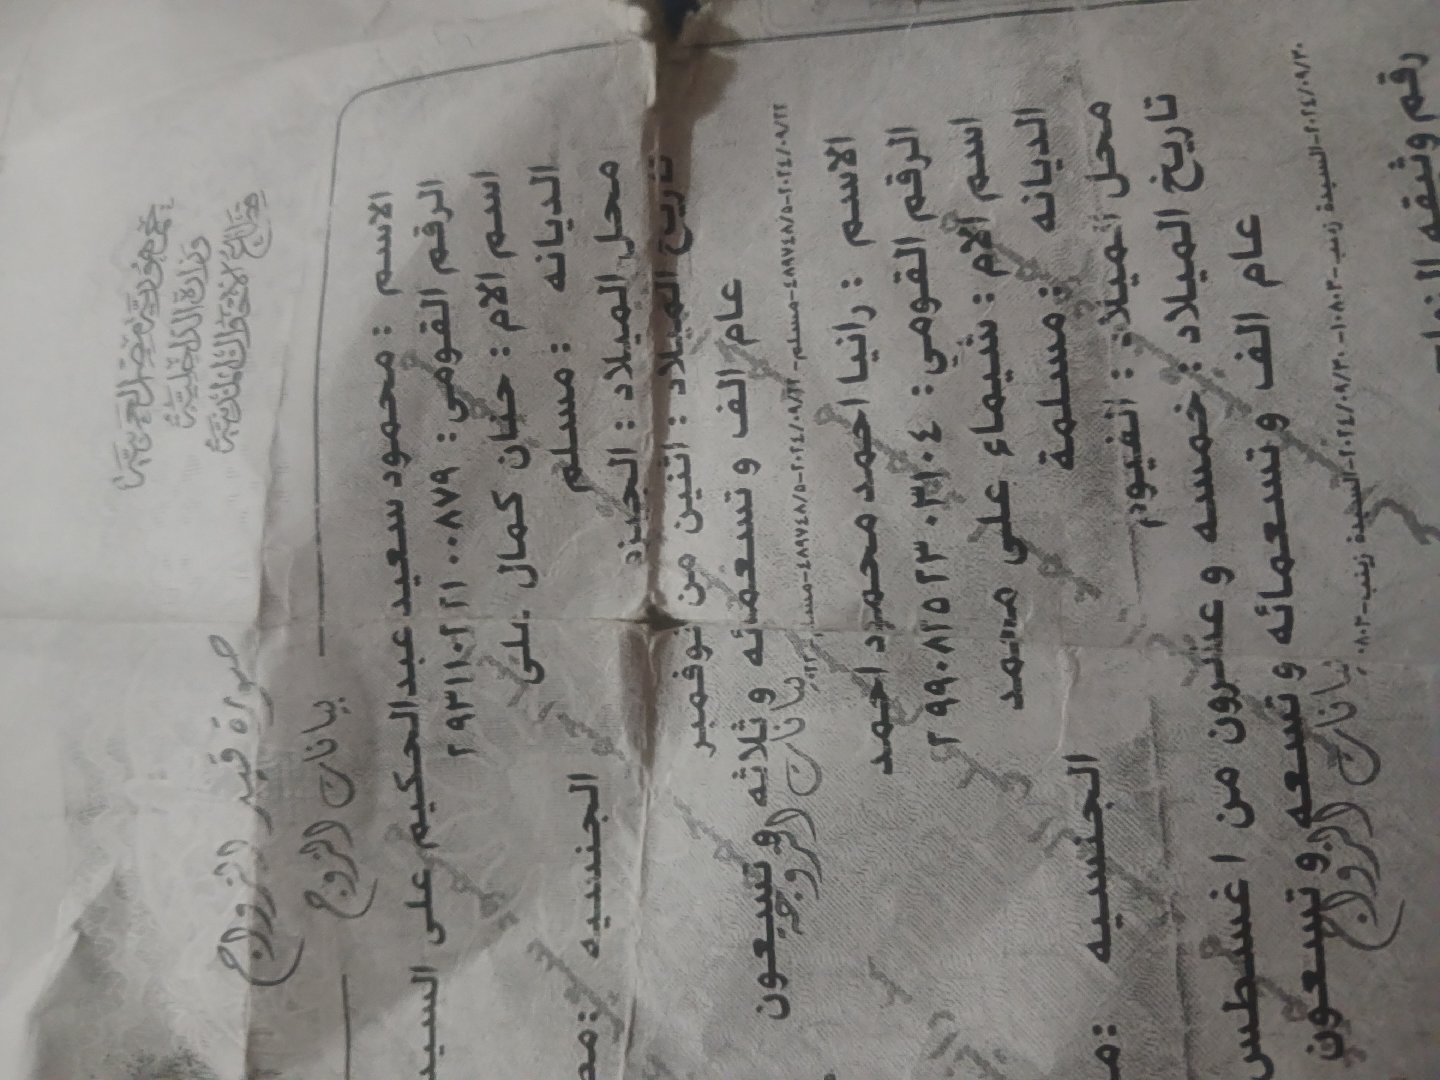 جمهورية مصر العربية
وزارة الداخلية
قطاع الأحوال المدنية
صورة قيد الزواج
بيانات الزوج
الاسم : محمود سعيد عبدالحكيم على السيد
الرقم القومي : ٢٩٣١١٠٢٢١٠٠٨٧٩
اسم الام : حنان كمال
الديانه : مسلم الجنسيه :
محل الميلاد :
تاريخ الميلاد : اثنين من نوفمبر
عام الف و تسعمائه و ثلاثه و تسعون
بيانات الزوجة
الاسم : رانيا احمد محمد احمد
الرقم القومي : ٢٩٩٠٨٢٥٢٣٠٣١٠٤
اسم الام : شيماء على محمد
الديانه : مسلمة الجنسيه :
محل الميلاد : الفيوم
تاريخ الميلاد : خمسه و عشرون من اغسطس
عام الف و تسعمائه و تسعه و تسعون
بيانات الزواج
رقم وثيقه الزواج